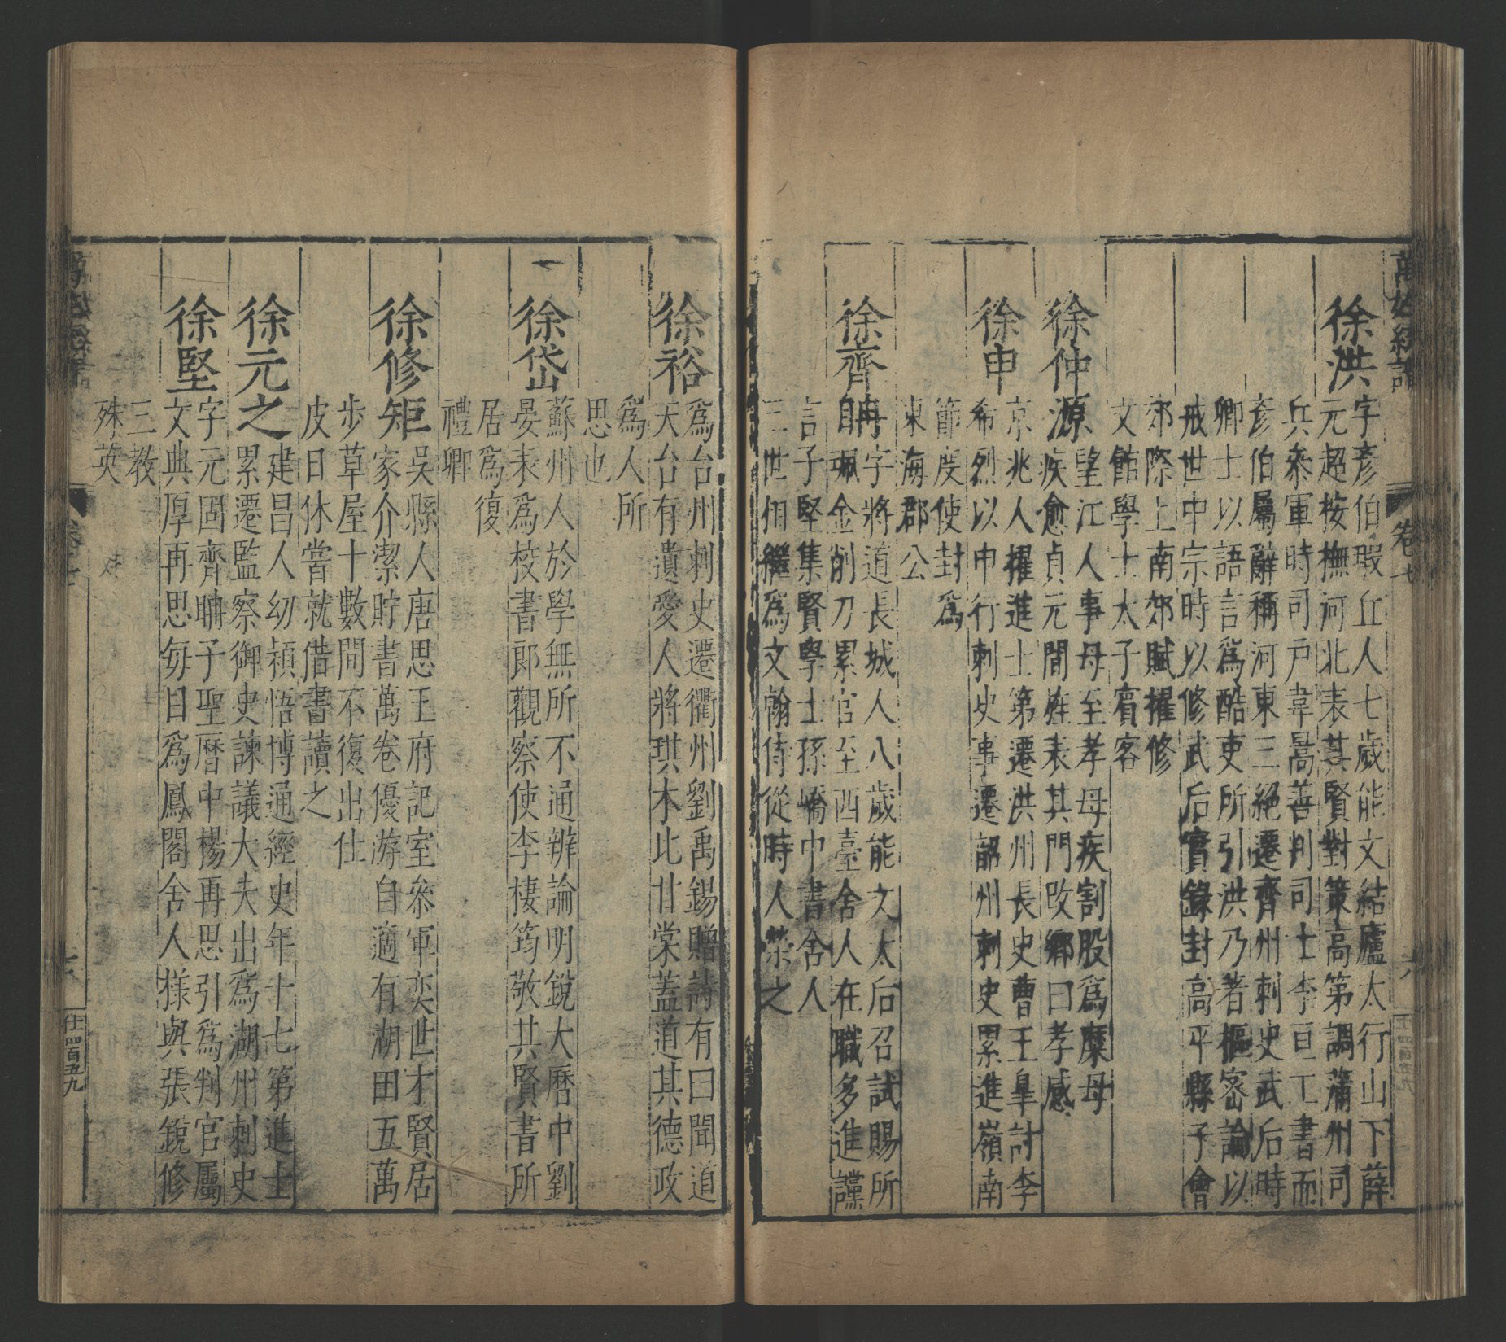 萬姓統譜
卷七
六
徐洪
字彥伯瑕丘人七歲能文結廬太行山下薛
元超按撫河北表其賢對策高第調蒲州司
兵叅軍時司戶韋暠善判司士李亘工書而
彥伯屬辭稱河東三絕遷齊州刺史武后時
卿士以語言爲酷吏所引洪乃著樞密論以
戒世中宗時以修武后實錄封高平縣子會
郊際上南郊賦擢修
文館學士太子賓客
徐仲源
望江人事母至孝母疾割股爲糜母
疾愈貞元間姓表其門改鄉曰孝感
徐申
京兆人擢進士第遷洪州長史曹王皐討李
希烈以申行刺史事遷韶州刺史累進嶺南
節度使封爲
東海郡公
徐齊
冉字將道長城人八歲能文太后召試賜所
自珮金削刀累官至西臺舍人在職多進讜
言子堅集賢學士孫嶠中書舍人
三世相繼爲文翰侍從時人榮之
徐裕
爲台州刺史遷衢州劉禹錫贈詩有曰聞道
天台有遺愛人將琪木比甘棠蓋道其德政
爲人所
思也
徐岱
蘇州人於學無所不通辨論明銳大曆中劉
晏表爲校書郎觀察使李棲筠敬其賢書所
居爲復
禮鄉
徐修矩
吳縣人唐思王府記室叅軍奕世才賢居
家介潔貯書萬卷優游自適有湖田五萬
步草屋十數間不復出仕
皮日休嘗就借書讀之
徐元之
建昌人幼穎悟博通經史年十七第進士
累遷監察御史諫議大夫出爲湖州刺史
徐堅
字元固齊聃子聖曆中楊再思引爲判官屬
文典厚再思每目爲鳳閣舍人樣與張說修
三教
珠英
卷七
六
仕四百五九